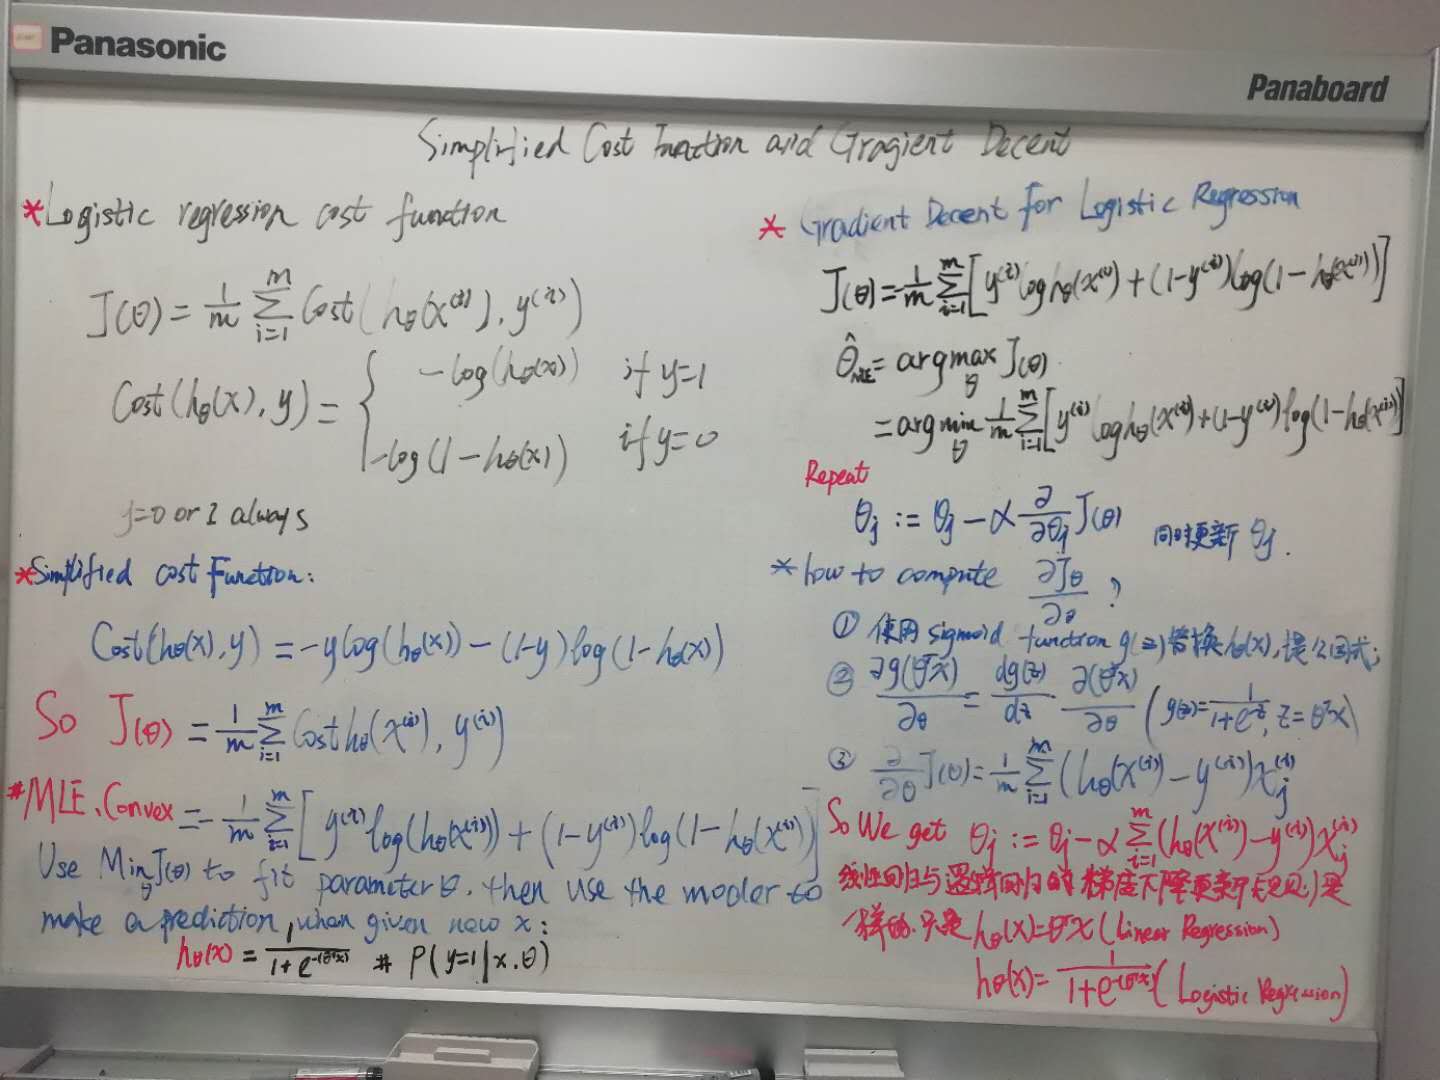 Panasonic
Panaboard
Simplified Cost Function and Gragient Decent
*Logistic regression cost function
J(θ) = 1/m Σ_{i=1}^{m} Cost(hθ(x^(i)), y^(i))
Cost(hθ(x), y) = { -log(hθ(x)) if y=1
-log(1-hθ(x)) if y=0
y=0 or 1 always
*Simplified cost Function:
Cost(hθ(x), y) = -ylog(hθ(x)) - (1-y)log(1-hθ(x))
So J(θ) = 1/m Σ_{i=1}^{m} Cost hθ(x^(i)), y^(i))
#MLE、Convex = -1/m Σ_{i=1}^{m} [y^(i) log(hθ(x^(i))) + (1-y^(i)) log(1-hθ(x^(i)))]
Use Min_θ J(θ) to fit parameter θ. then use the model to
make a prediction, when given new x:
hθ(x) = 1/(1+e^-(θᵀx)) # P(y=1|x.θ)
* Gradient Decent for Logistic Regression
J(θ) = -1/m Σ_{i=1}^{m} [y^(i) log hθ(x^(i)) + (1-y^(i)) log(1-hθ(x^(i)))]
θ̂_MLE = argmax_θ J(θ)
= argmin_θ -1/m Σ_{i=1}^{m} [y^(i) log hθ(x^(i)) + (1-y^(i)) log(1-hθ(x^(i)))]
Repeat
θj := θj - α ∂/∂θj J(θ) 同时更新 θj.
* how to compute ∂Jθ/∂θ ?
① 使用 sigmoid function g(z)替换hθ(x), 公式;
② ∂g(θᵀx)/∂θ = dg(z)/dz ∂(θᵀx)/∂θ (g(z)=1/(1+e^-z), z=θᵀx)
③ ∂/∂θ J(θ) = 1/m Σ_{i=1}^{m} (hθ(x^(i)) - y^(i)) xj^(i)
So We get θj := θj - α Σ_{i=1}^{m} (hθ(x^(i)) - y^(i)) xj^(i)
线性回归与逻辑回归的梯度下降更新规则是
一样的.只是 hθ(x)=θᵀx (Linear Regression)
hθ(x) = 1/(1+e^-(θᵀx)) (Logistic Regression)